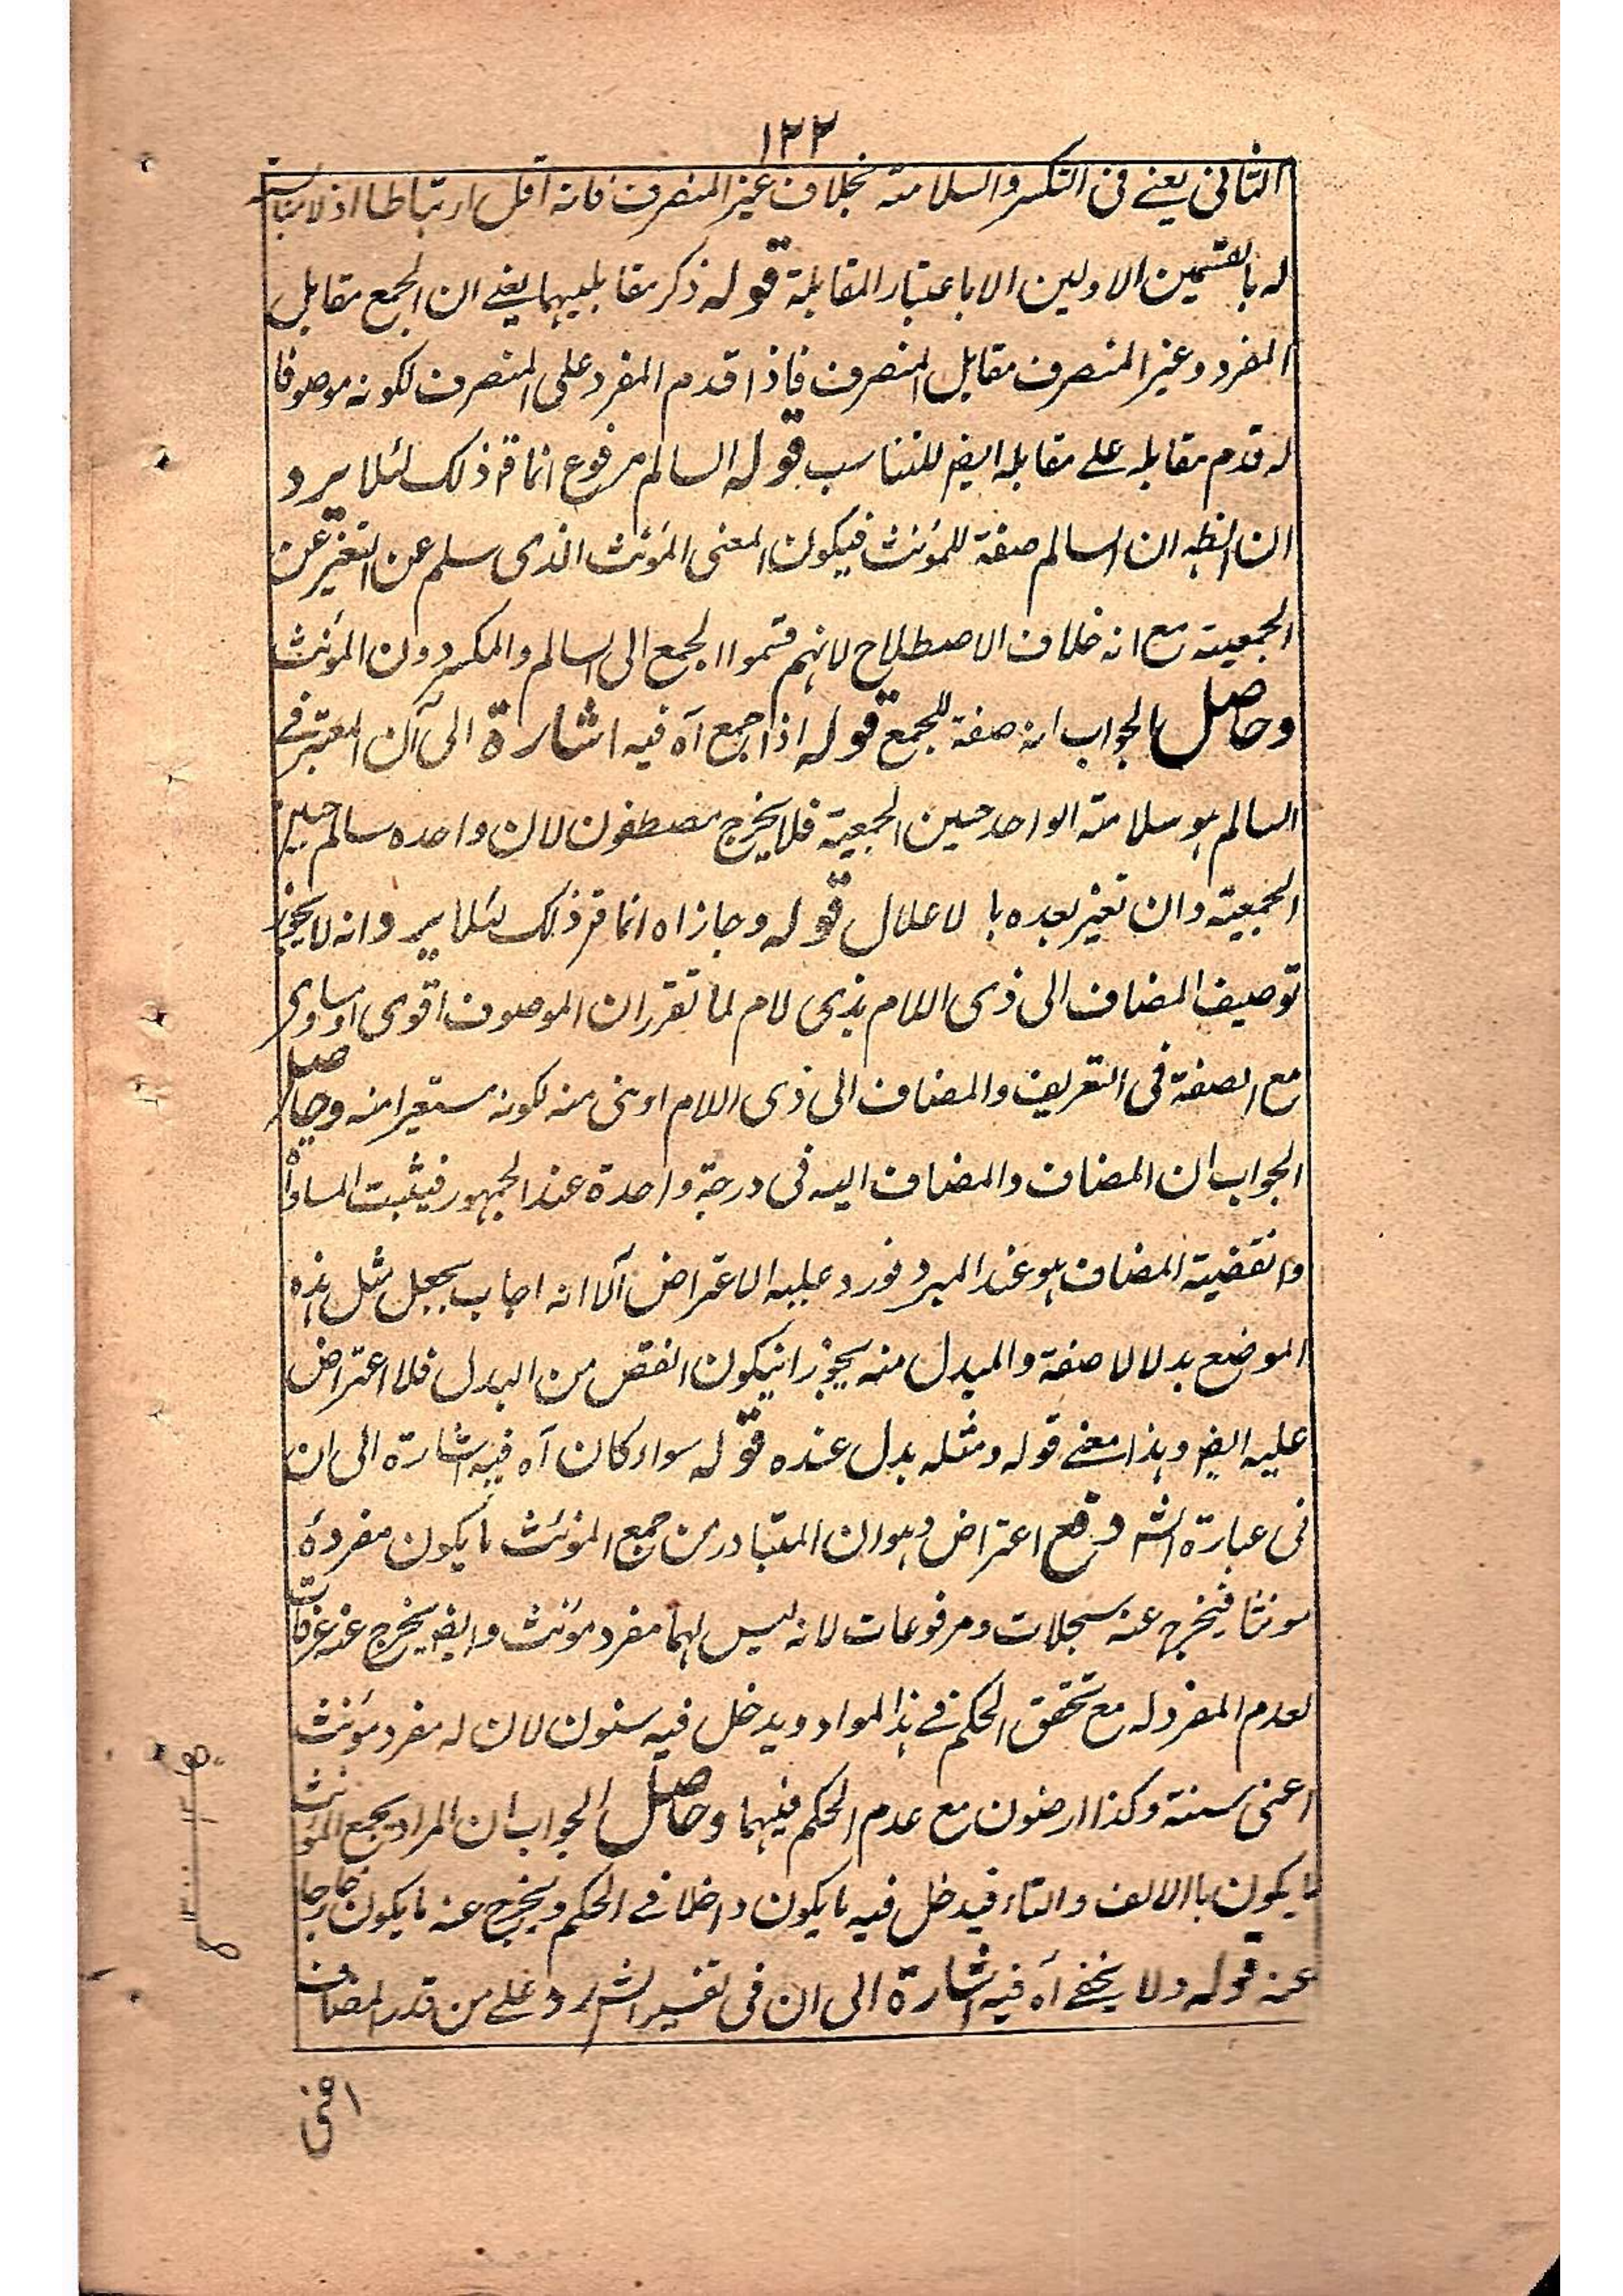 ١٢٢
الثانی یعنے فی التکسر والسلامة بخلاف غیر المنصرف فانه اقل ارتباطا اذ لا مناسبة
له بالقسمین الاولین الا باعتبار المقابلة قوله ذکر مقابلیهما یعنے ان الجمع مقابل
المفرد وغیر المنصرف مقابل المنصرف فاذا قدم المفرد علی المنصرف لکونه موصوفا
له قدم مقابله علے مقابله ایضر للتناسب قوله السالم مرفوع انما قر ذلک لئلا یرد
ان الظہ ان السالم صفة للمؤنث فیکون المعنی المؤنث الذی سلم عن التغیر عن
الجمعیة مع انه خلاف الاصطلاح لانهم قسموا الجمع الی السالم والمکسر دون المؤنث
وحاصل الجواب انه صفة للجمع قوله اذا جمع آه فیه اشارة الی آن المعتبر فے
السالم ہو سلامة الواحد حین الجمعیة فلا یخرج مصطفون لان واحده سالم حین
الجمعیة وان تغیر بعده با لاعلال قوله وجاز اه انما قر ذلک لئلا یرد انه لا یجوز
توصیف المضاف الی ذی اللام بذی لام لما تقرر ان الموصوف اقوی اومساوی
مع الصفة فی التعریف والمضاف الی ذی اللام ادنی منه لکونه مستعیرا منه وحاصل
الجواب ان المضاف والمضاف الیه فی درجة واحدة عند الجمهور فیثبت المساواة
وانقضیة المضاف ہو عند المبرد فورد علیه الاعتراض آلا انه اجاب بجعل مثل ہذه
الموضع بدلا لا صفة والمبدل منه یجوز انیکون انقص من البدل فلا اعتراض
علیه ایضر وہذا معنے قوله ومثله بدل عنده قوله سواء کان آه فیه اشارة الی ان
فی عبارة الشہ وقع اعتراض وہو ان المتبادر من جمع المؤنث ما یکون مفردهٔ
مونثا فیخرج عنه سجلات ومرفوعات لانه لیس لهما مفرد مؤنث وایضر یخرج عنه عرفات
لعدم المفرد له مع تحقق الحکم فے ہذا المواد ویدخل فیه سنون لان له مفرد مؤنث
اعنی سنة وکذا ارضون مع عدم الحکم فیهما وحاصل الجواب ان المراد بجمع المؤنث
ما یکون باالالف والتاء فیدخل فیه ما یکون داخلا فے الحکم ویخرج عنه ما یکون خارجا
عنه قوله ولا یخفے آه فیه اشارة الی ان فی تفسیر الشر رد علے من قدر المضاف